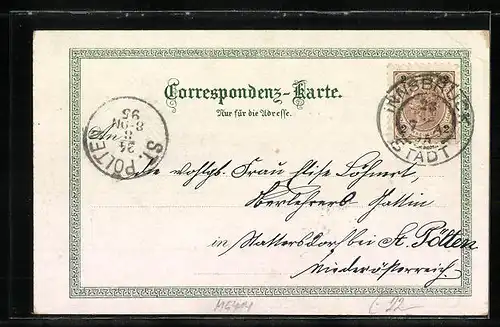 Correspondenz-Karte.
Nur für die Adresse.
INNSBRUCK
STADT
ST. PÖLTEN
24
8
95
8-9N
An
die wohlgb. Frau Elise Löhnert,
Oberlehrers Gattin
in Stattersdorf bei St. Pölten
Niederösterreich.